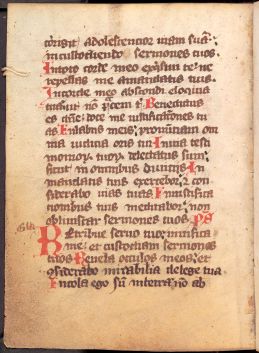 corrigit adolescentior uiam suā:
in custodiendo sermones tuos.
In toto corde meo exquisiui te: ne
repellas me a mandatis tuis.
In corde meo abscondi eloquia
tua: ut nō peccem t. Benedictus
es dñe: doce me iustificatiōnes tu
as. In labiis meis: pronūtiaui om
nia iudicia oris tui. In uia testi
monioꝝ tuoꝝ delectatus sum:
sicut in omnibus diuitiis. In
mandatis tuis exercebor: ⁊ con
siderabo uias tuas. In iustifica
tionibus tuis meditabor: non
obliuiscar sermones tuos. ps
Retribue seruo tuo: uiuifica
me: et custodiam sermones
tuos. Reuela oculos meos: et
ꝯsiderabo mirabilia de lege tua
Incola ego sum in terra: nō ab